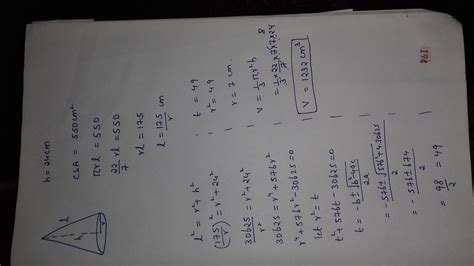 l
h
r
h = 24cm
CSA = 550cm²
πrl = 550
22/7 rl = 550
rl = 175
l = 175/r cm
l² = r² + h²
(175/r)² = r² + 24²
30625/r² = r² + 24²
30625 = r⁴ + 576r²
r⁴ + 576r² - 30625 = 0
let r² = t
t² + 576t - 30625 = 0
t = -b ± √b²-4ac / 2a
= -576 ± √576²-4.30625 / 2
= -576 ± 674 / 2
= 98/2 = 49
t = 49
r² = 49
r = 7 cm.
V = 1/3 πr²h
= 1/3 × 22/7 × 7 × 7 × 24 8
V = 1232 cm³